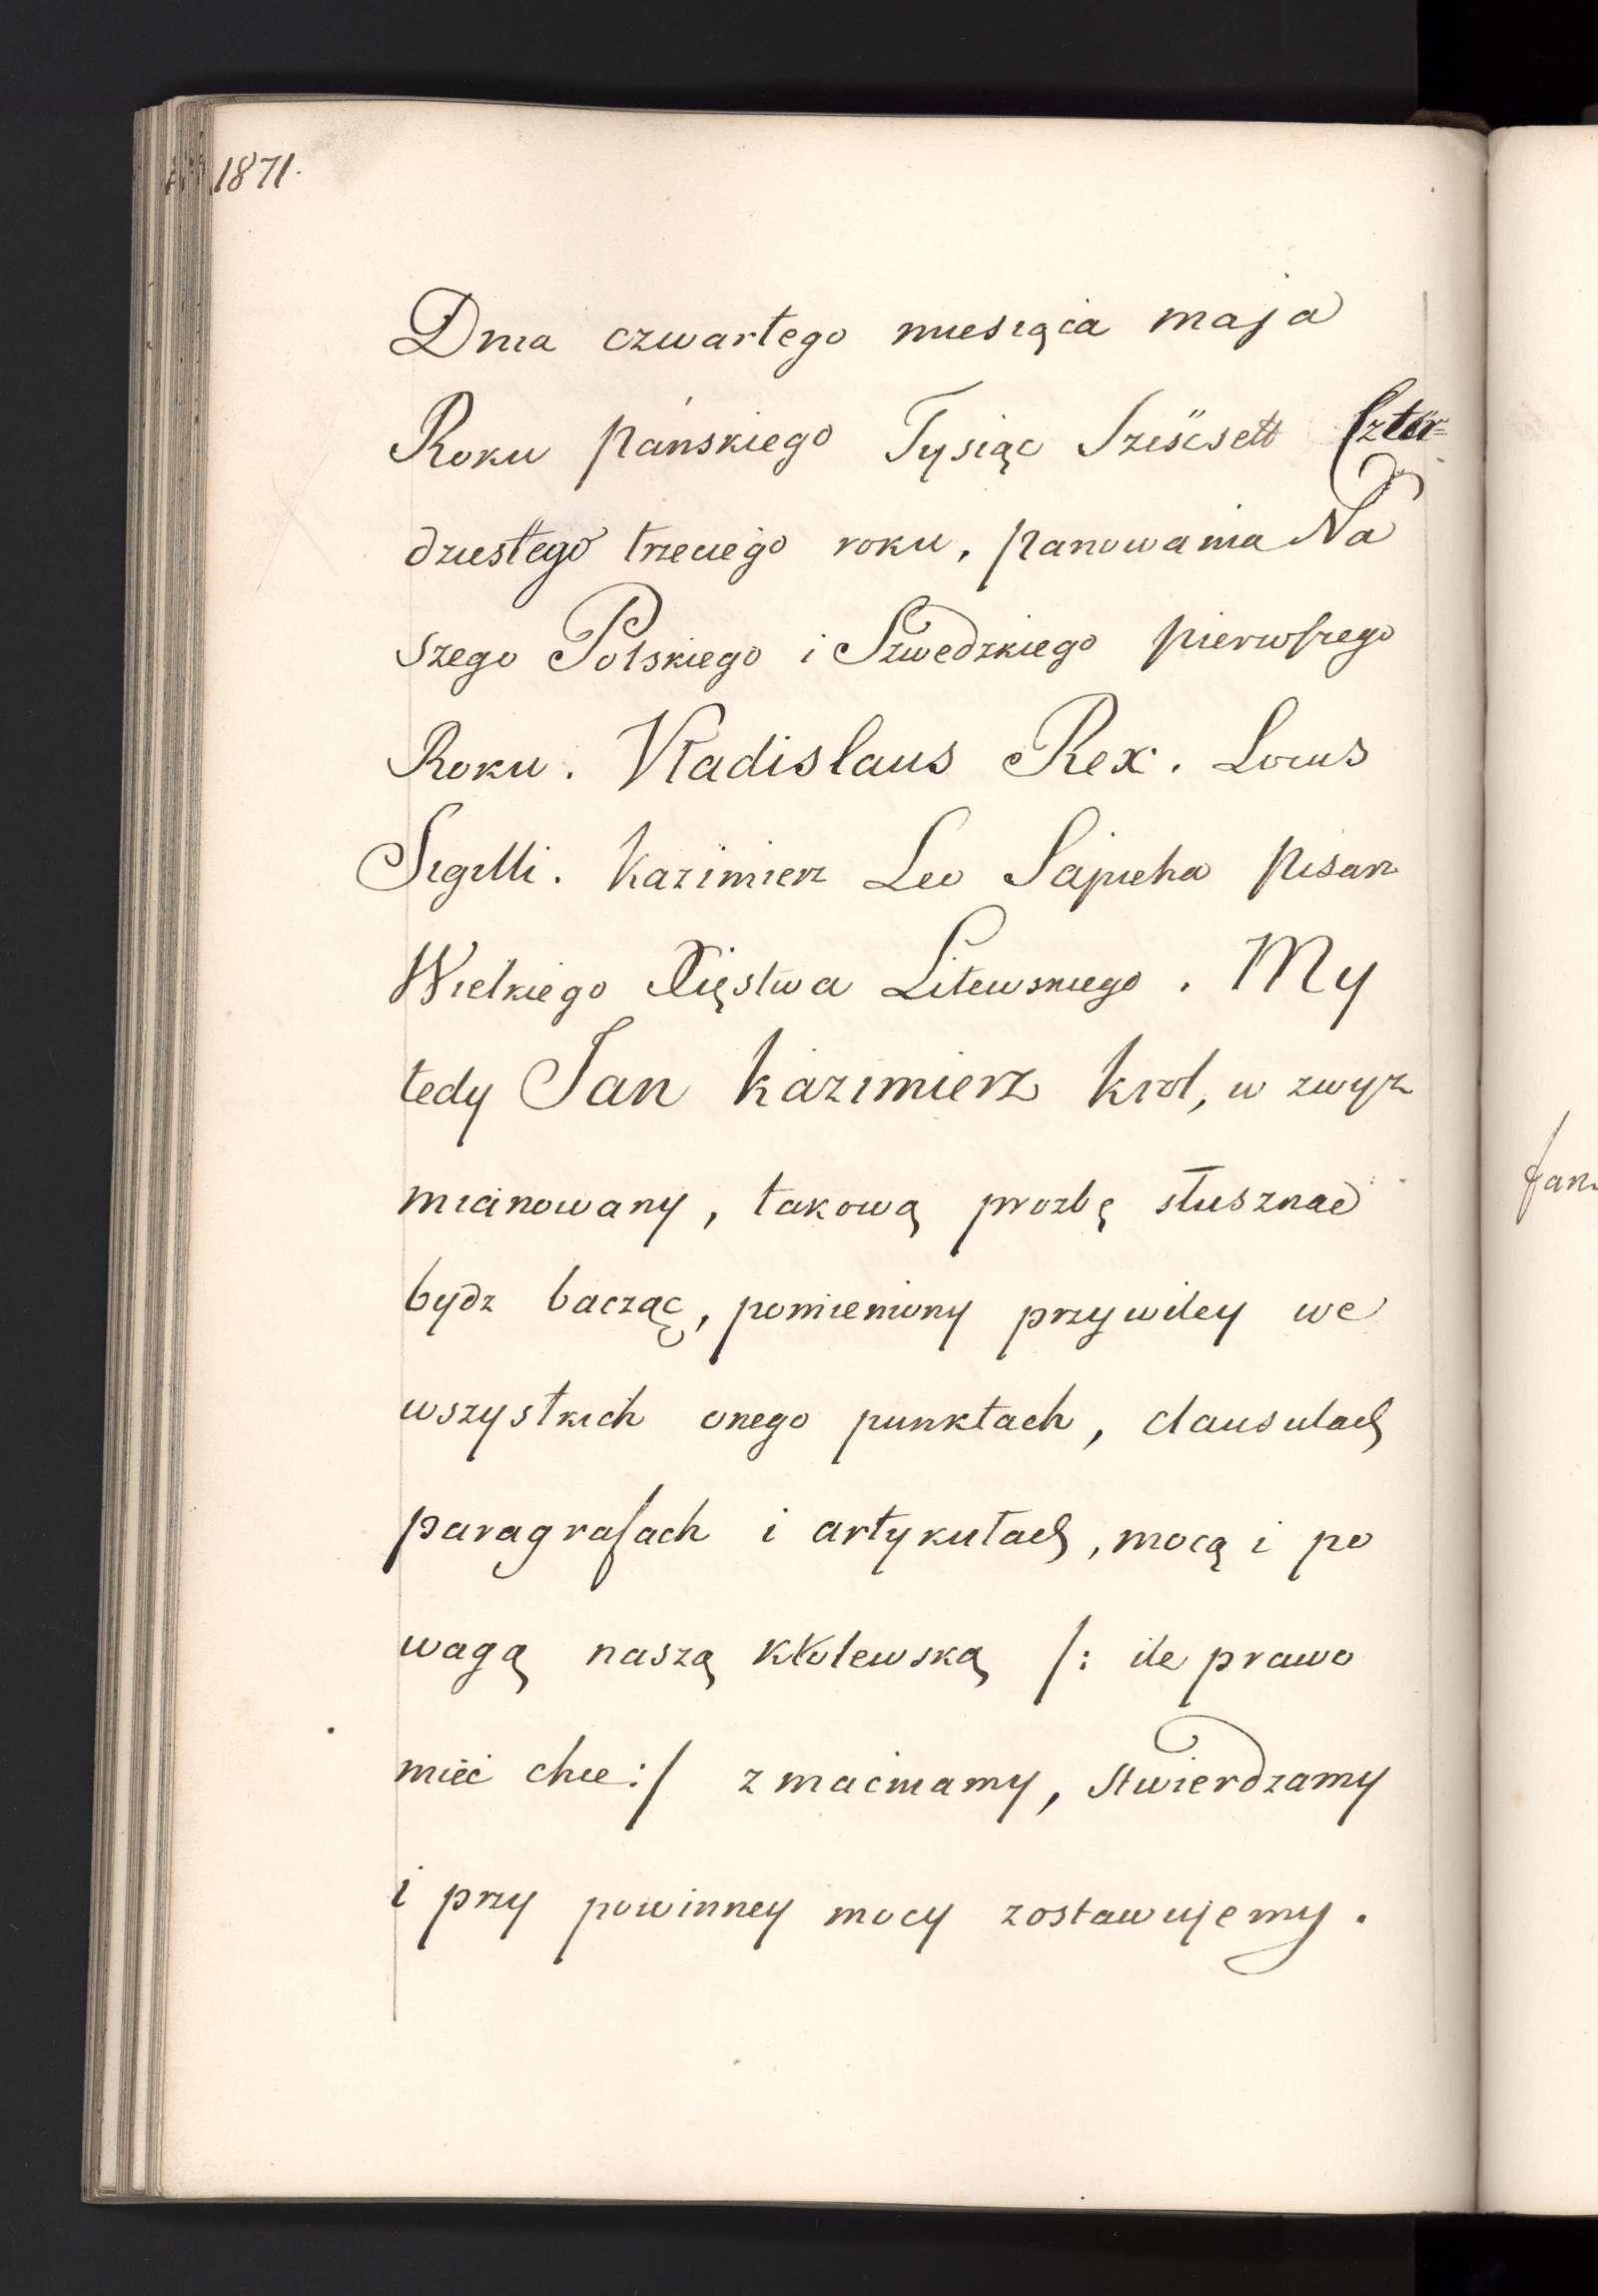 1871.
Dnia czwartego miesiąca maja
Roku pańskiego Tysiąc Sześćsett Czter=
dziestego trzeciego roku, panowania Na
szego Polskiego i Szwedzkiego pierwszego
Roku. Vladislaus Rex. Locus
Sigilli. Kazimierz Leo Sapieha Pisarz
Wielkiego Xięstwa Litewskiego. My
tedy Jan Kazimierz Krol, w zwyż
mianowany, takową prozbę słusznae
bydz bacząc, pomieniony przywiley we
wszystkich onego punktach, clausulach
paragrafach i artykułach, mocą i po
wagą naszą Królewską /: ile prawo
mieć chce:/ zmacniamy, stwierdzamy
i przy powinney mocy zostawujemy.